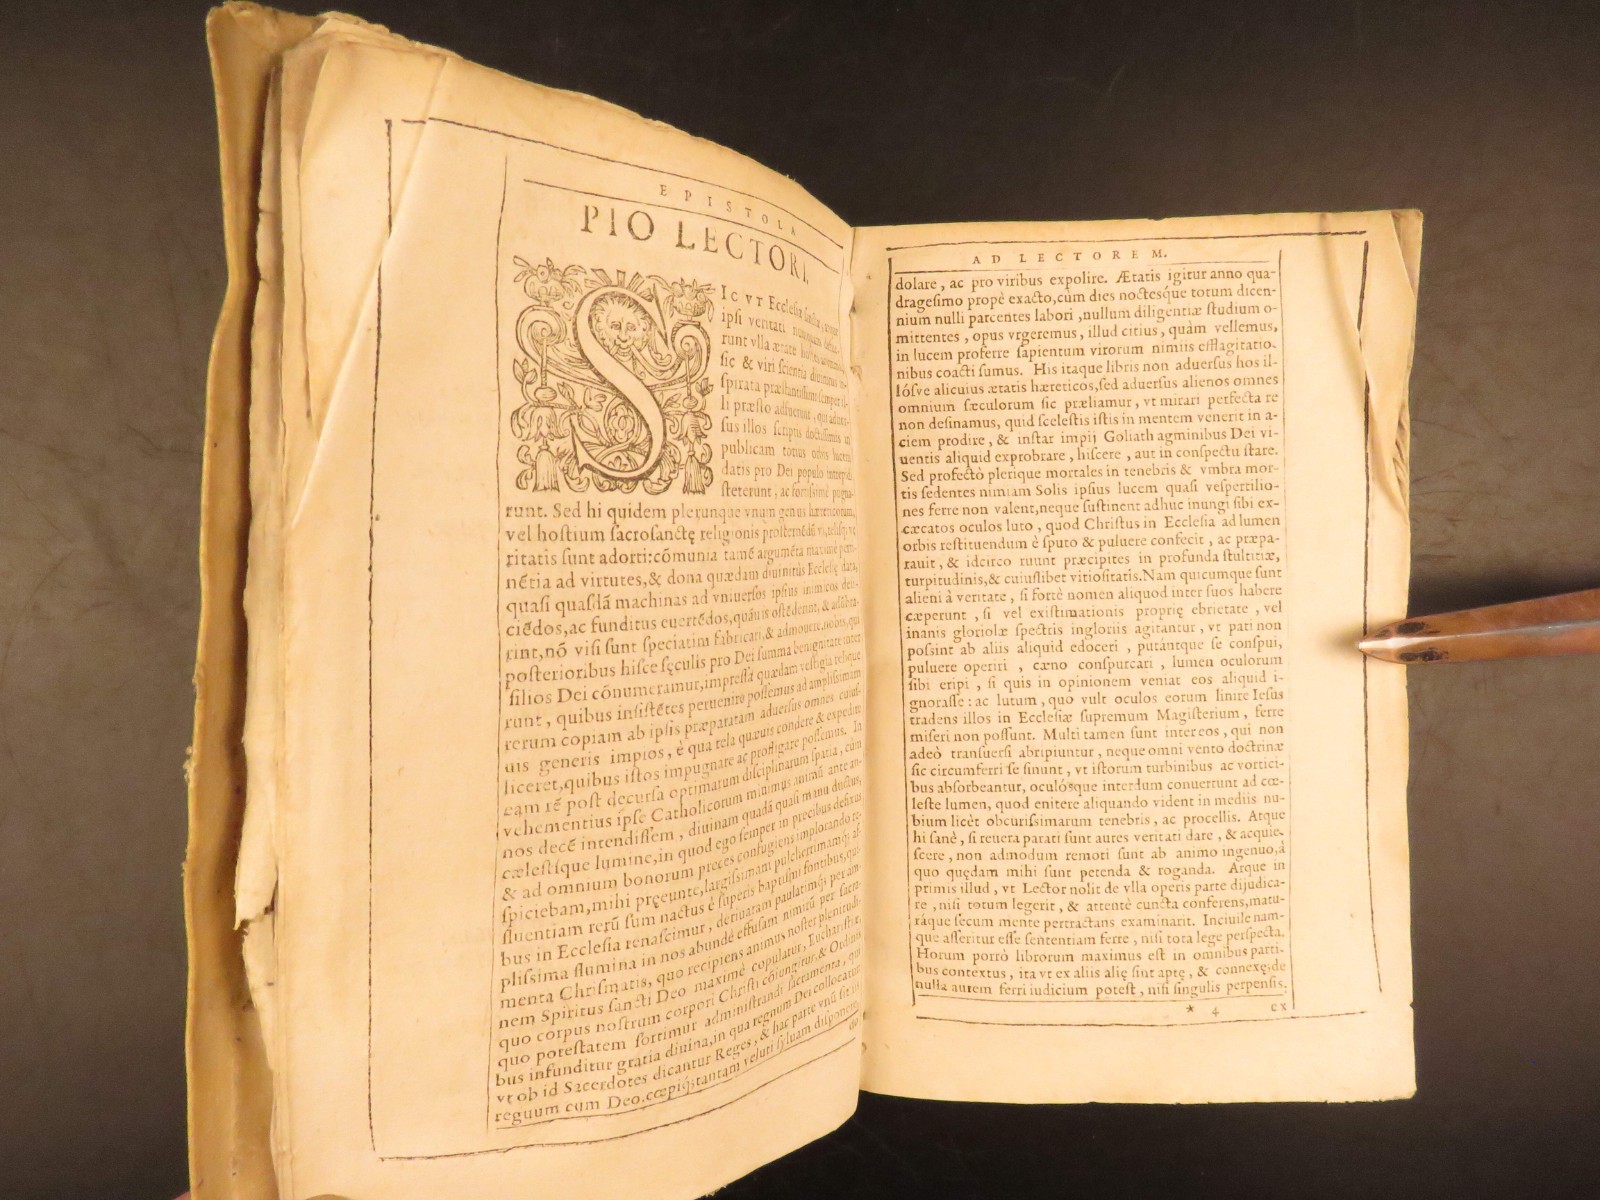 EPISTOLA
PIO LECTORI,
SICVT Ecclesia sancta, neque
ipsi veritati nunquam defue-
runt vlla ætate hostes
sic & viri scientia diuinitus in-
spirata præstantissimi semper il-
li præsto adfuerunt, qui aduer-
sus illos scriptis doctissimis in
publicam totius orbis lucem
datis pro Dei populo intrepidi
steterunt, ac fortissimè pugna-
runt. Sed hi quidem plerunque vnum genus hæreticorum,
vel hostium sacrosanctę religionis prosternẽdũ
ritatis sunt adorti: cõmunia tamẽ argumẽta maximè perti-
nẽtia ad virtutes, & dona quædam diuinitùs Ecclesię data,
quasi quasdã machinas ad vniuersos ipsius inimicos deii-
ciẽdos, ac funditus euertẽdos, quãuis ostẽderint, & assibica-
rint, nõ visi sunt speciatim fabricari, & admouere. nobis, qui
posterioribus hisce sęculis pro Dei summa benignitate inter
filios Dei cõnumeramur, impressa quædam vestigia relique
runt, quibus insistẽtes peruenire possemus ad amplissimam
rerum copiam ab ipsis præparatam aduersus omnes cuius-
uis generis impios, è qua tela quæuis condere & expedire
liceret, quibus istos impugnare ac profligare possemus. In
eam rẽ post decursa optimarum disciplinarum spatia, cùm
vehementius ipse Catholicorum minimus animũ ante an-
nos decẽ intendissem, diuinam quadã quasi manu ductus,
cælestíque lumine, in quod ego semper in precibus defixus
& ad omnium bonorum preces confugiens implorando re-
spiciebam, mihi pręeunte, largissimam pulcherrimamq́; af-
fluentiam rerũ sum nactus è superis baptismi fontibus, qui-
bus in Ecclesia renascimur, deriuatam paulatimq́; per am-
plissima flumina in nos abundè effusam nimirũ per sacra-
menta Chrismatis, quo recipiens animus nostes plenitudi-
nem Spiritus sancti Deo maximè copulatur, Eucharistiæ,
quo corpus nostrum corpori Christi cõiungitur, & Ordinis
quo potestatem sortimur administrandi sacramenta, qui
bus infunditur gratia diuina, in qua regnum Dei collocatur
vt ob id Sacerdotes dicantur Reges, & hac parte vnũ sit iis
regnum cum Deo. cœpiq́; tantam veluti syluam disponere,
AD LECTOREM.
dolare, ac pro viribus expolire. Ætatis igitur anno qua-
dragesimo propè exacto, cùm dies noctésque totum dicen-
nium nulli parcentes labori, nullum diligentiæ studium o-
mittentes, opus vrgeremus, illud citius, quàm vellemus,
in lucem proferre sapientum virorum nimiis efflagitatio-
nibus coacti sumus. His itaque libris non aduersus hos il-
lósve alicuius ætatis hæreticos, sed aduersus alienos omnes
omnium sæculorum sic præliamur, vt mirari perfecta re
non desinamus, quid scelestis istis in mentem venerit in a-
ciem prodire, & instar impij Goliath agminibus Dei vi-
uentis aliquid exprobrare, hiscere, aut in conspectu stare.
Sed profectò plerique mortales in tenebris & vmbra mor-
tis sedentes nimiam Solis ipsius lucem quasi vespertilio-
nes ferre non valent, neque sustinent adhuc inungi sibi ex-
cæcatos oculos luto, quod Christus in Ecclesia ad lumen
orbis restituendum è sputo & puluere confecit, ac præpa-
rauit, & idcirco ruunt præcipites in profunda stultitiæ,
turpitudinis, & cuiuslibet vitiositatis. Nam quicumque sunt
alieni à veritate, si fortè nomen aliquod inter suos habere
cæperunt, si vel existimationis proprię ebrietate, vel
inanis gloriolæ spectris ingloriis agitantur, vt pati non
possint ab aliis aliquid edoceri, putántque se conspui,
puluere operiri, cæno conspurcari, lumen oculorum
sibi eripi, si quis in opinionem veniat eos aliquid i-
gnorasse: ac lutum, quo vult oculos eorum linire Iesus
tradens illos in Ecclesiæ supremum Magisterium, ferre
miseri non possunt. Multi tamen sunt inter eos, qui non
adeò transuersi abripiuntur, neque omni vento doctrinæ
sic circumferri se sinunt, vt istorum turbinibus ac vortici-
bus absorbeantur, oculósque interdum conuertunt ad cœ-
leste lumen, quod enitere aliquando vident in mediis nu-
bium licèt obcurissimarum tenebris, ac procellis. Atque
hi sanè, si reuera parati sunt aures veritati dare, & acquie-
scere, non admodum remoti sunt ab animo ingenuo, à
quo quędam mihi sunt petenda & roganda. Atque in
primis illud, vt Lector nolit de vlla operis parte dijudica-
re, nisi totum legerit, & attentè cuncta conferens, matu-
ráque secum mente pertractans examinarit. Inciuile nam-
que asseritur esse sententiam ferre, nisi tota lege perspecta.
Horum porrò librorum maximus est in omnibus parti-
bus contextus, ita vt ex aliis alię sint aptę, & connexę; de
nulla autem ferri iudicium potest, nisi singulis perpensis.
* 4 ex